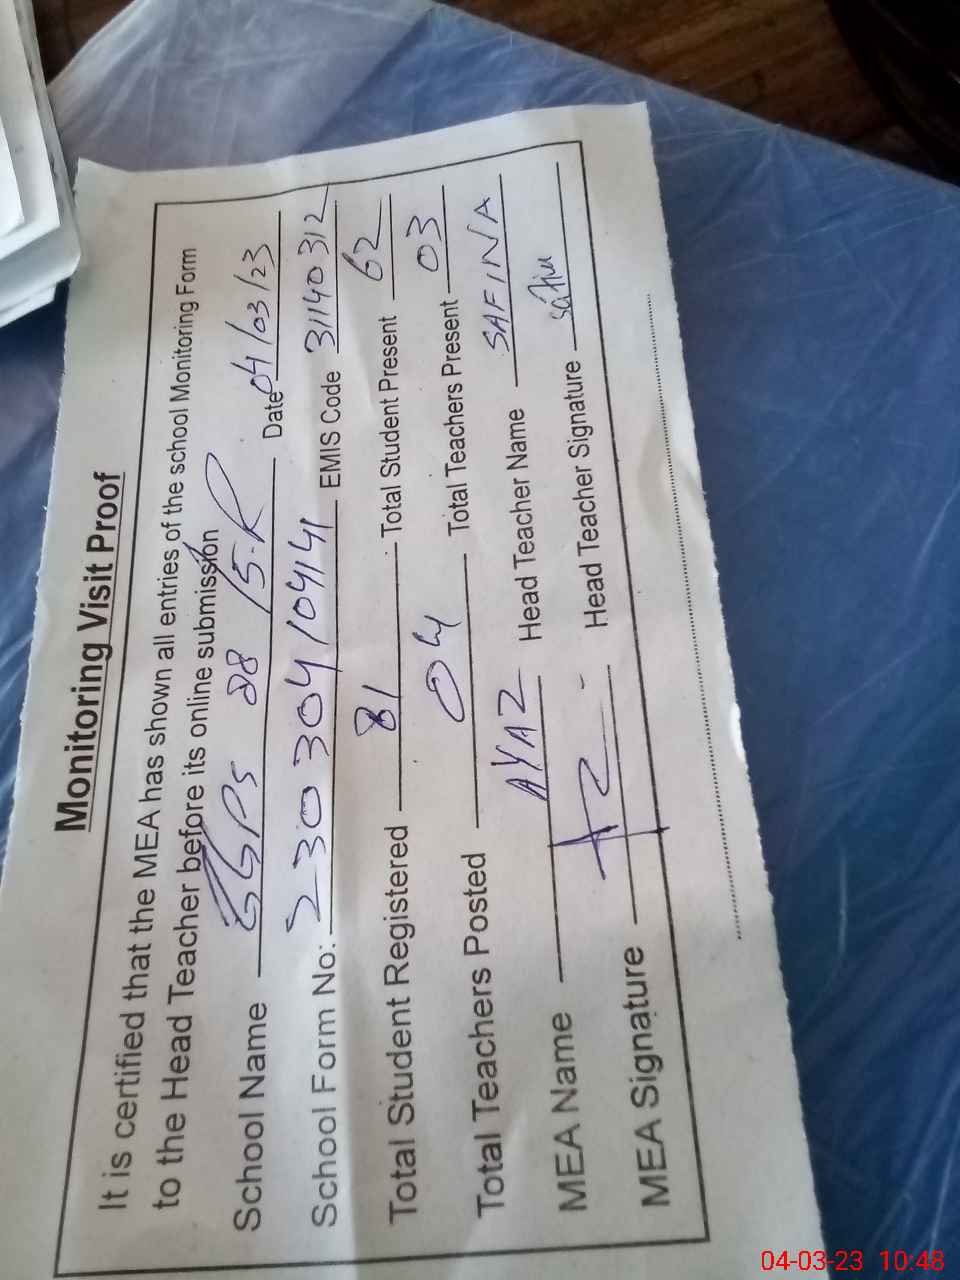 Monitoring Visit Proof
It is certified that the MEA has shown all entries of the school Monitoring Form
to the Head Teacher before its online submission
School Name GGPS 88/5-R Date 04/03/23
School Form No: 230304104141 EMIS Code 31140312
Total Student Registered 81 Total Student Present 62
Total Teachers Posted 04 Total Teachers Present 03
MEA Name AYAZ Head Teacher Name SAFINA
MEA Signature AZ Head Teacher Signature
04-03-23 10:48